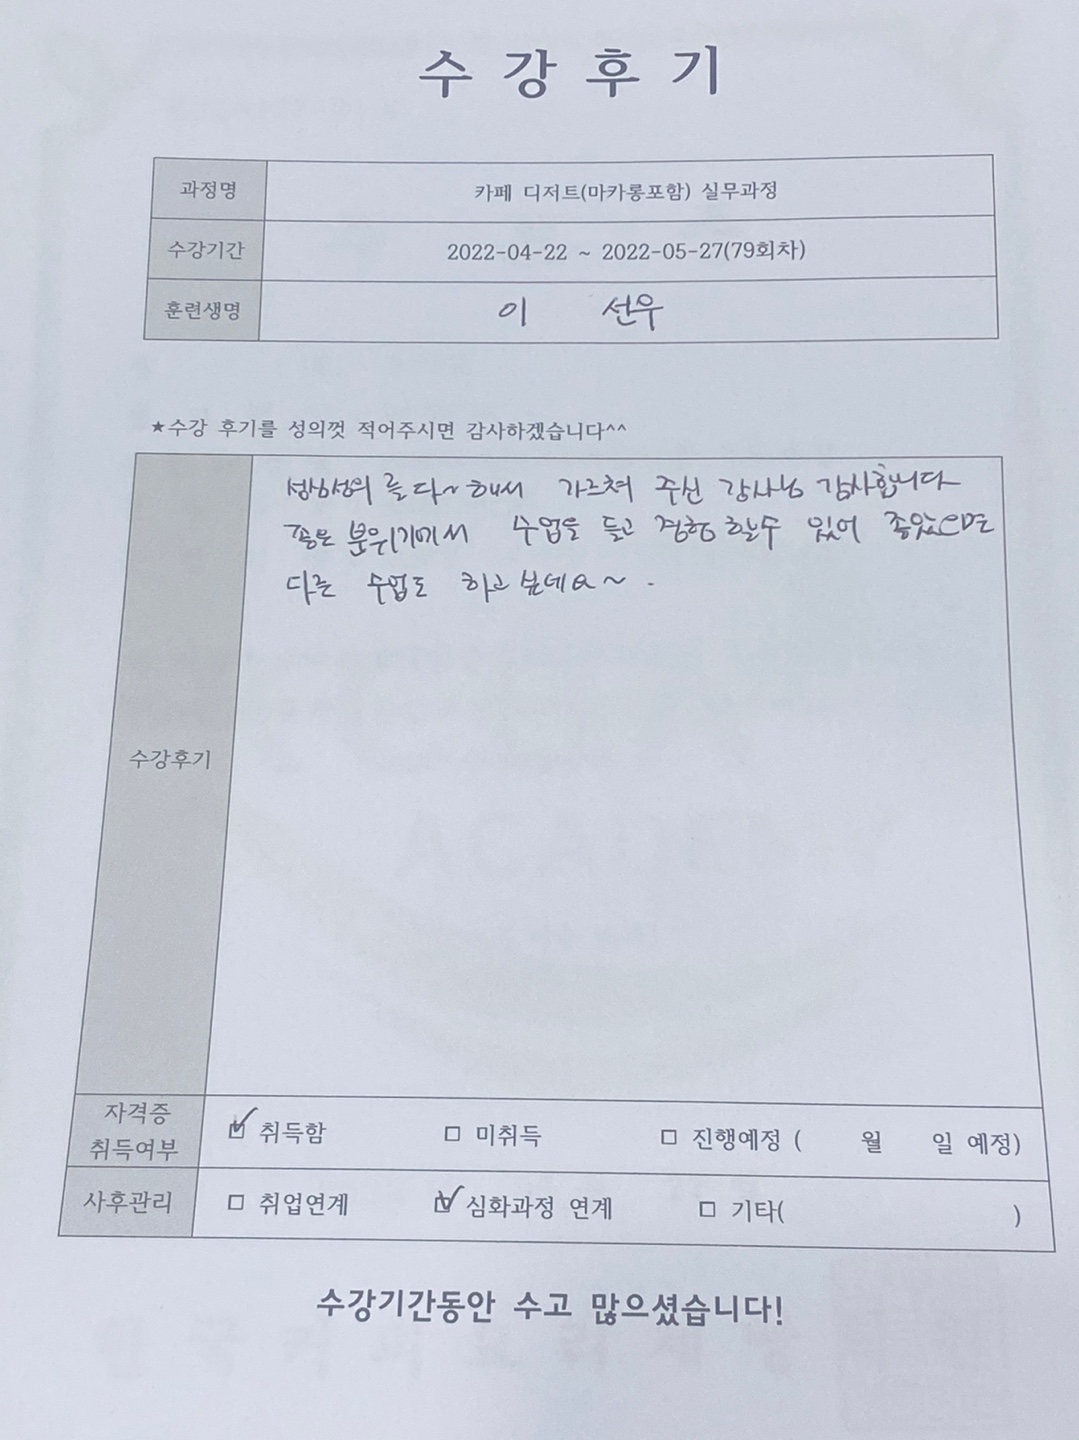 수강후기
과정명 카페 디저트(마카롱포함) 실무과정
수강기간 2022-04-22 ~ 2022-05-27(79회차)
훈련생명 이 선우
★수강 후기를 성의껏 적어주시면 감사하겠습니다^^
성심성의를 다~해서 가르쳐 주신 강사님 감사합니다
좋은 분위기에서 수업을 듣고 경험 할수 있어 좋았으며
다른 수업도 하고 싶네요~.
수강후기
자격증 취득여부 ☑ 취득함 □ 미취득 □ 진행예정 ( 월 일 예정)
사후관리 □ 취업연계 ☑ 심화과정 연계 □ 기타( )
수강기간동안 수고 많으셨습니다!